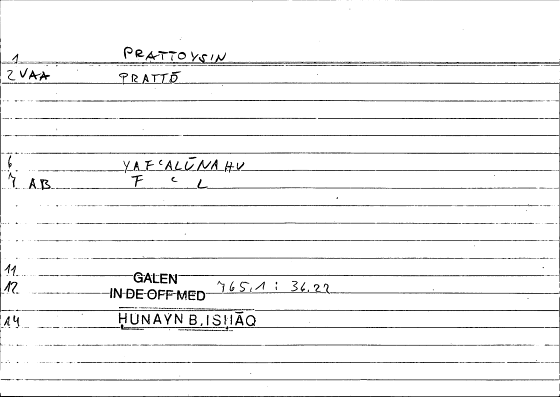 1 PRATTOYSIN
2 VAA PRATTŌ
6 YAFʿALŪNAHU
7 AB F ʿ L
11
12 GALEN
IN DE OFF MED 765,1 : 36.22
14 HUNAYN B. ISHĀQ